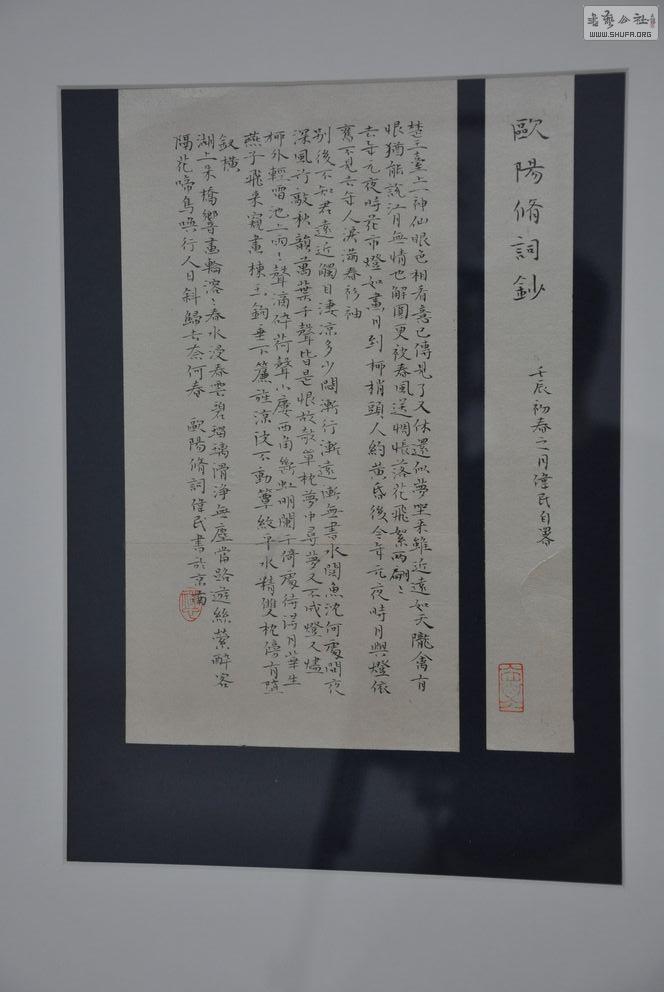 書藝公社
WWW.SHUFA.ORG
歐陽脩詞鈔
壬辰初春之月偉民自署
楚王臺上一神仙眼色相看意已傳見了又休還似夢坐來雖近遠如天隴禽有
恨猶能說江月無情也解圓更被春風送惆悵落花飛絮兩翩〻
去年元夜時花市燈如晝月到柳梢頭人約黃昏後今年元夜時月與燈依
舊不見去年人淚滿春衫袖
別後不知君遠近觸目淒涼多少悶漸行漸遠漸無書水闊魚沈何處問夜
深風竹敲秋韻萬葉千聲皆是恨故敧單枕夢中尋夢又不成燈又燼
柳外輕雷池上雨〻聲滴碎荷聲小樓西角斷虹明闌干倚處待得月華生
燕子飛來窺畫棟玉鉤垂下簾旌涼波不動簟紋平水精雙枕傍有墮
釵橫
湖上朱橋響畫輪溶〻春水浸春雲碧琉璃滑淨無塵當路遊絲縈醉客
隔花啼鳥喚行人日斜歸去奈何春 歐陽脩詞偉民書於京南